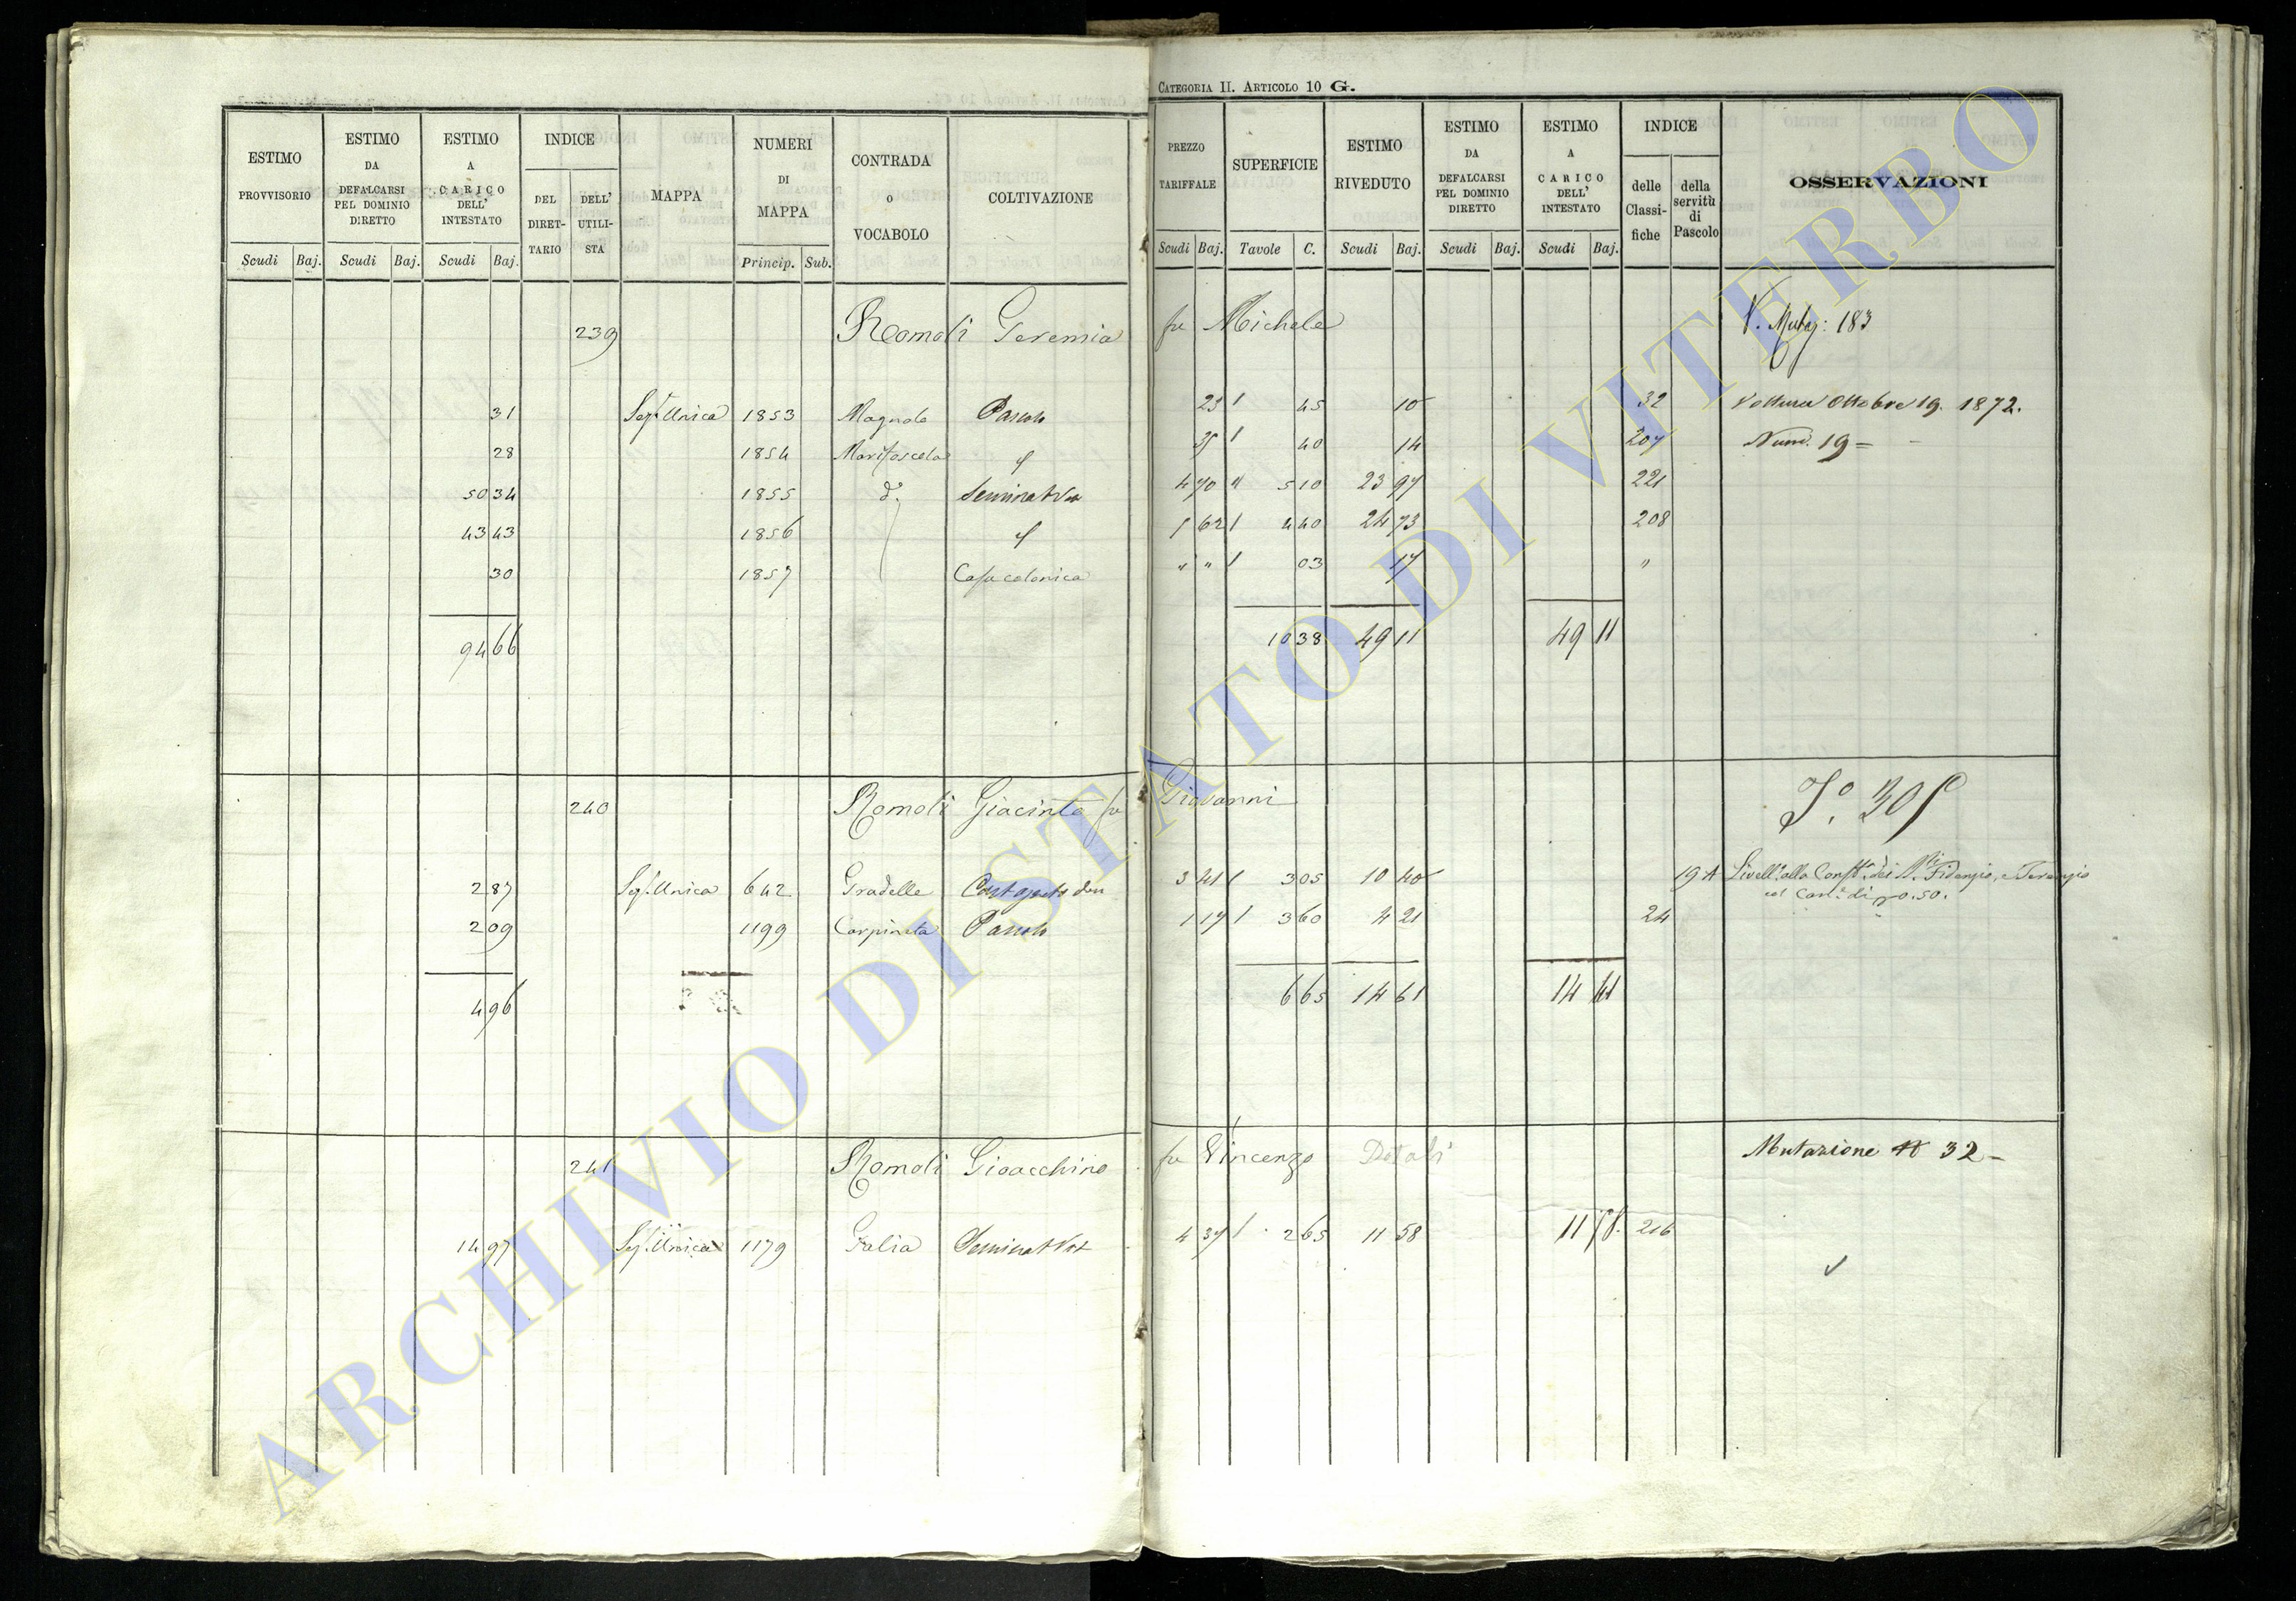 CATEGORIA II. ARTICOLO 10 G.
ESTIMO PROVVISORIO
Scudi Baj.
ESTIMO DA DEFALCARSI PEL DOMINIO DIRETTO
Scudi Baj.
ESTIMO A CARICO DELL' INTESTATO
Scudi Baj.
INDICE
DEL DIRET-TARIO
DELL' UTILI-STA
MAPPA
NUMERI DI MAPPA
Princip. Sub.
CONTRADA o VOCABOLO
COLTIVAZIONE
PREZZO TARIFFALE
Scudi Baj.
SUPERFICIE
Tavole C.
ESTIMO RIVEDUTO
Scudi Baj.
ESTIMO DA DEFALCARSI PEL DOMINIO DIRETTO
Scudi Baj.
ESTIMO A CARICO DELL' INTESTATO
Scudi Baj.
INDICE
delle Classi-fiche
della servitù di Pascolo
OSSERVAZIONI
239 Romoli Geremia fu Michele 183
31 Sez.e Unica 1853 Pascolo 23 45 10 32 Voltura Ottobre 19. 1872.
28 1854 40 14 207 Num. 19 =
50 34 1855 d.o Seminat Vit 4 70 " 5 10 23 97 221
43 43 1856 1 62 4 40 24 73 208
30 1857 Casa colonica " " 03 17 "
94 66 10 38 49 11 49 11
240 Romoli Giacinto fu Giovanni
2 87 Sez. Unica 642 Gradelle 3 41 3 05 10 40 19 A
2 09 1199 Carpineta Pascolo 1 17 3 60 4 21 24
4 96 6 65 14 61 14 61
241 Romoli Gioacchino fu Vincenzo Mutazione N 32 -
14 97 Sez. Unica 1179 Galia Seminat Vit 4 37 2 65 11 58 11 58. 216
ARCHIVIO DI STATO DI VITERBO